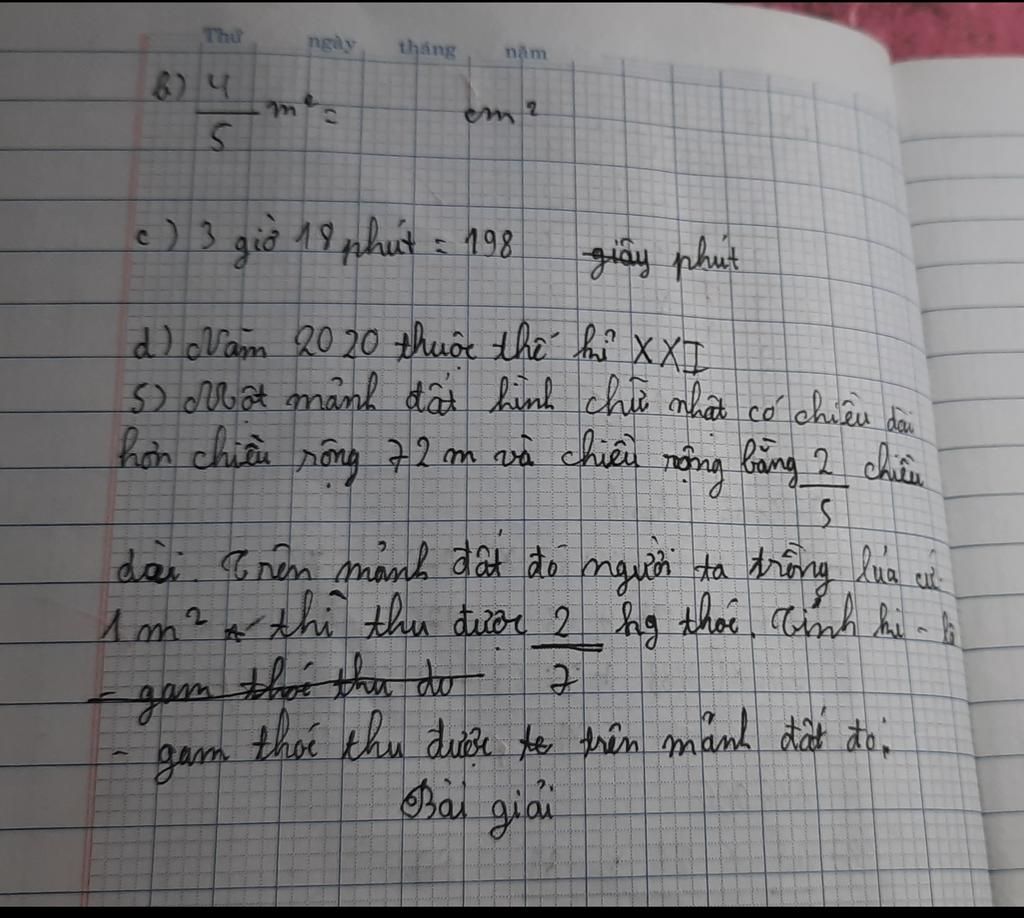 Thứ ngày tháng năm
b) 4/5 m² = cm²
c) 3 giờ 18 phút = 198 giây phút
d) Năm 2020 thuộc thế kỉ XXI
5) Một mảnh đất hình chữ nhật có chiều dài
hơn chiều rộng 72 m và chiều rộng bằng 2/5 chiều
dài. Trên mảnh đất đó người ta trồng lúa cứ
1 m² thì thu được 2/7 kg thóc. Tính ki - lô
- gam thóc thu do
- gam thóc thu được te trên mảnh đất đó.
Bài giải